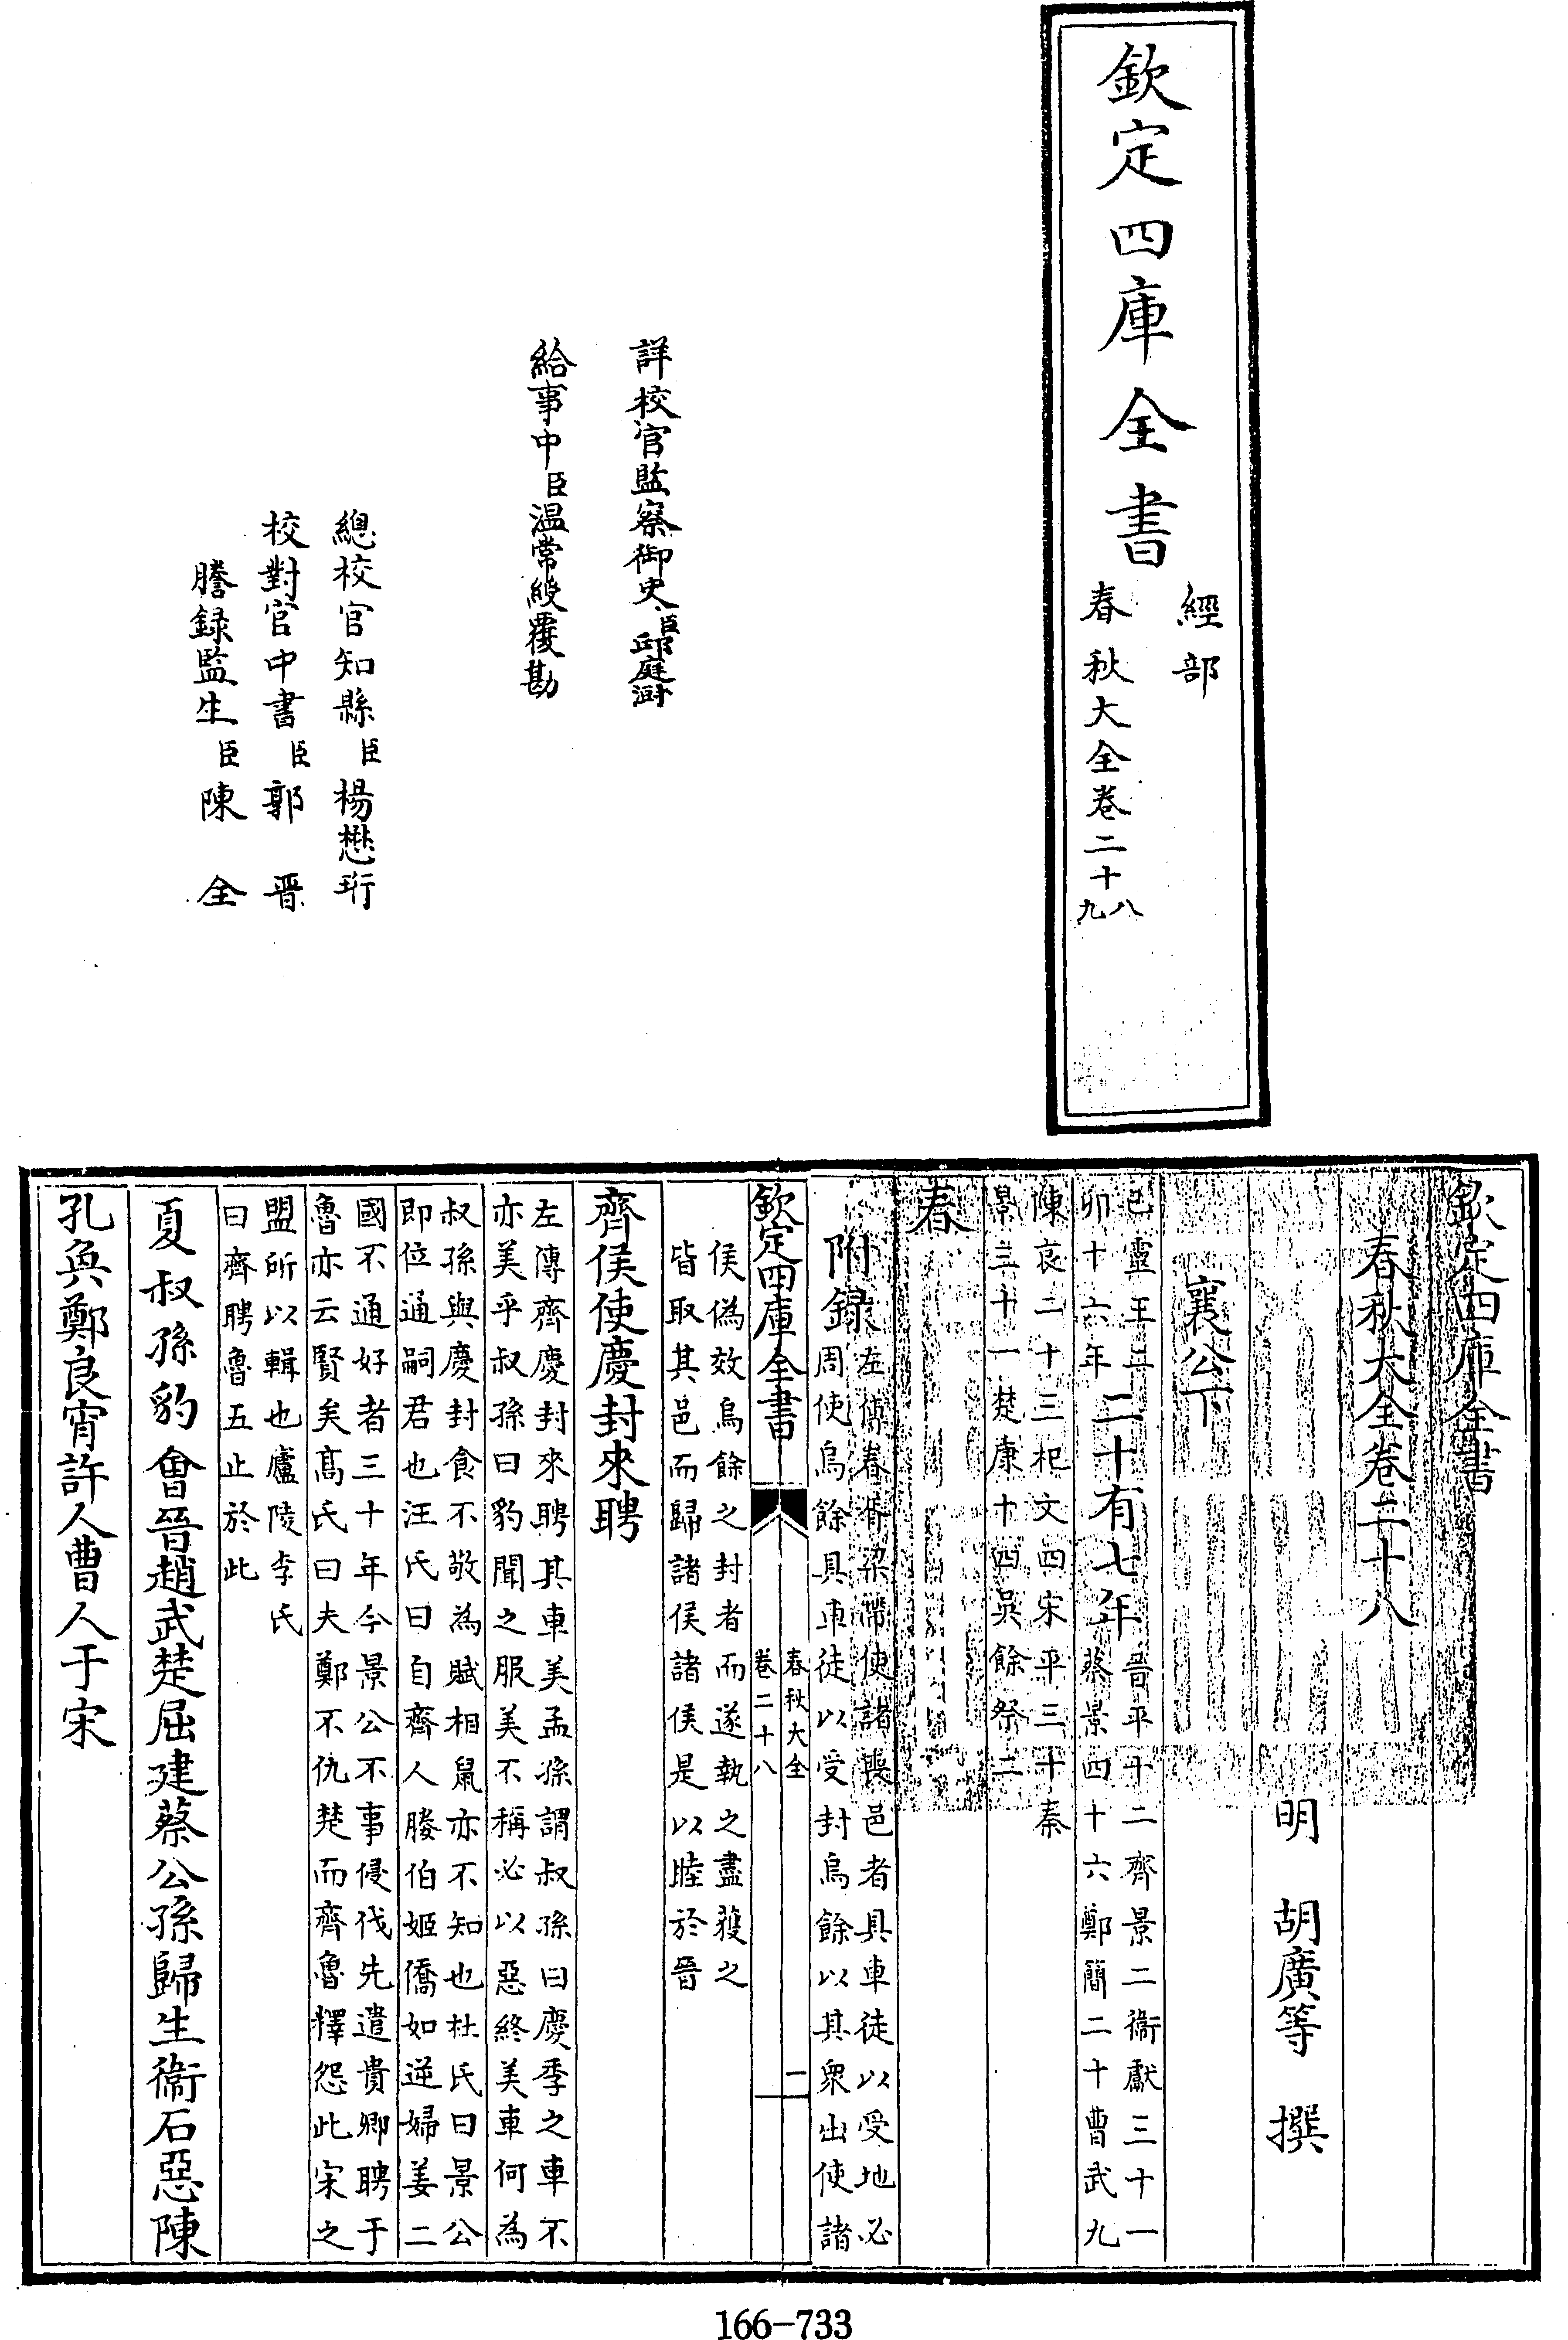 欽定四庫全書
經部
春秋大全卷二十八九
詳校官監察御史臣邱庭漋
給事中臣温常綬覆勘
總校官知縣臣楊懋珩
校對官中書臣郭晋
謄録監生臣陳全
欽定四庫全書
春秋大全卷二十八
明 胡廣等 撰
襄公下
己靈王二十六年
卯十六年
二十有七年
晋平十二齊景二衞獻三十一
蔡景四十六鄭簡二十曹武九
陳哀二十三杞文四宋平三十秦
景三十一楚康十四吳餘祭二
春
附録
左傳春胥梁帶使諸喪邑者具車徒以受地必
周使烏餘具車徒以受封烏餘以其衆出使諸
欽定四庫全書
春秋大全
卷二十八
一
侯偽效烏餘之封者而遂執之盡獲之
皆取其邑而歸諸侯諸侯是以睦於晉
齊侯使慶封來聘
左傳齊慶封來聘其車美孟孫謂叔孫曰慶季之車不
亦美乎叔孫曰豹聞之服美不稱必以惡終美車何為
叔孫與慶封食不敬為賦相鼠亦不知也杜氏曰景公
即位通嗣君也汪氏曰自齊人媵伯姬僑如逆婦姜二
國不通好者三十年今景公不事侵伐先遣貴卿聘于
魯亦云賢矣髙氏曰夫鄭不仇楚而齊魯釋怨此宋之
盟所以輯也廬陵李氏
曰齊聘魯五止於此
夏叔孫豹會晉趙武楚屈建蔡公孫歸生衞石惡陳
孔奐鄭良宵許人曹人于宋
166-733